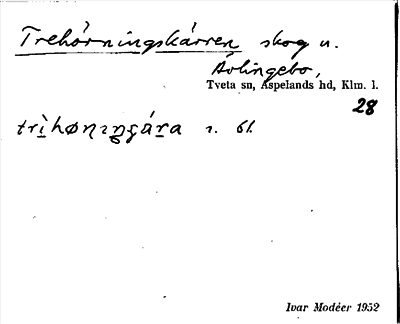 Trehörningskärren skog u.
Avlingebo,
Tveta sn, Aspelands hd, Klm. l.
28
Ivar Modéer 1952